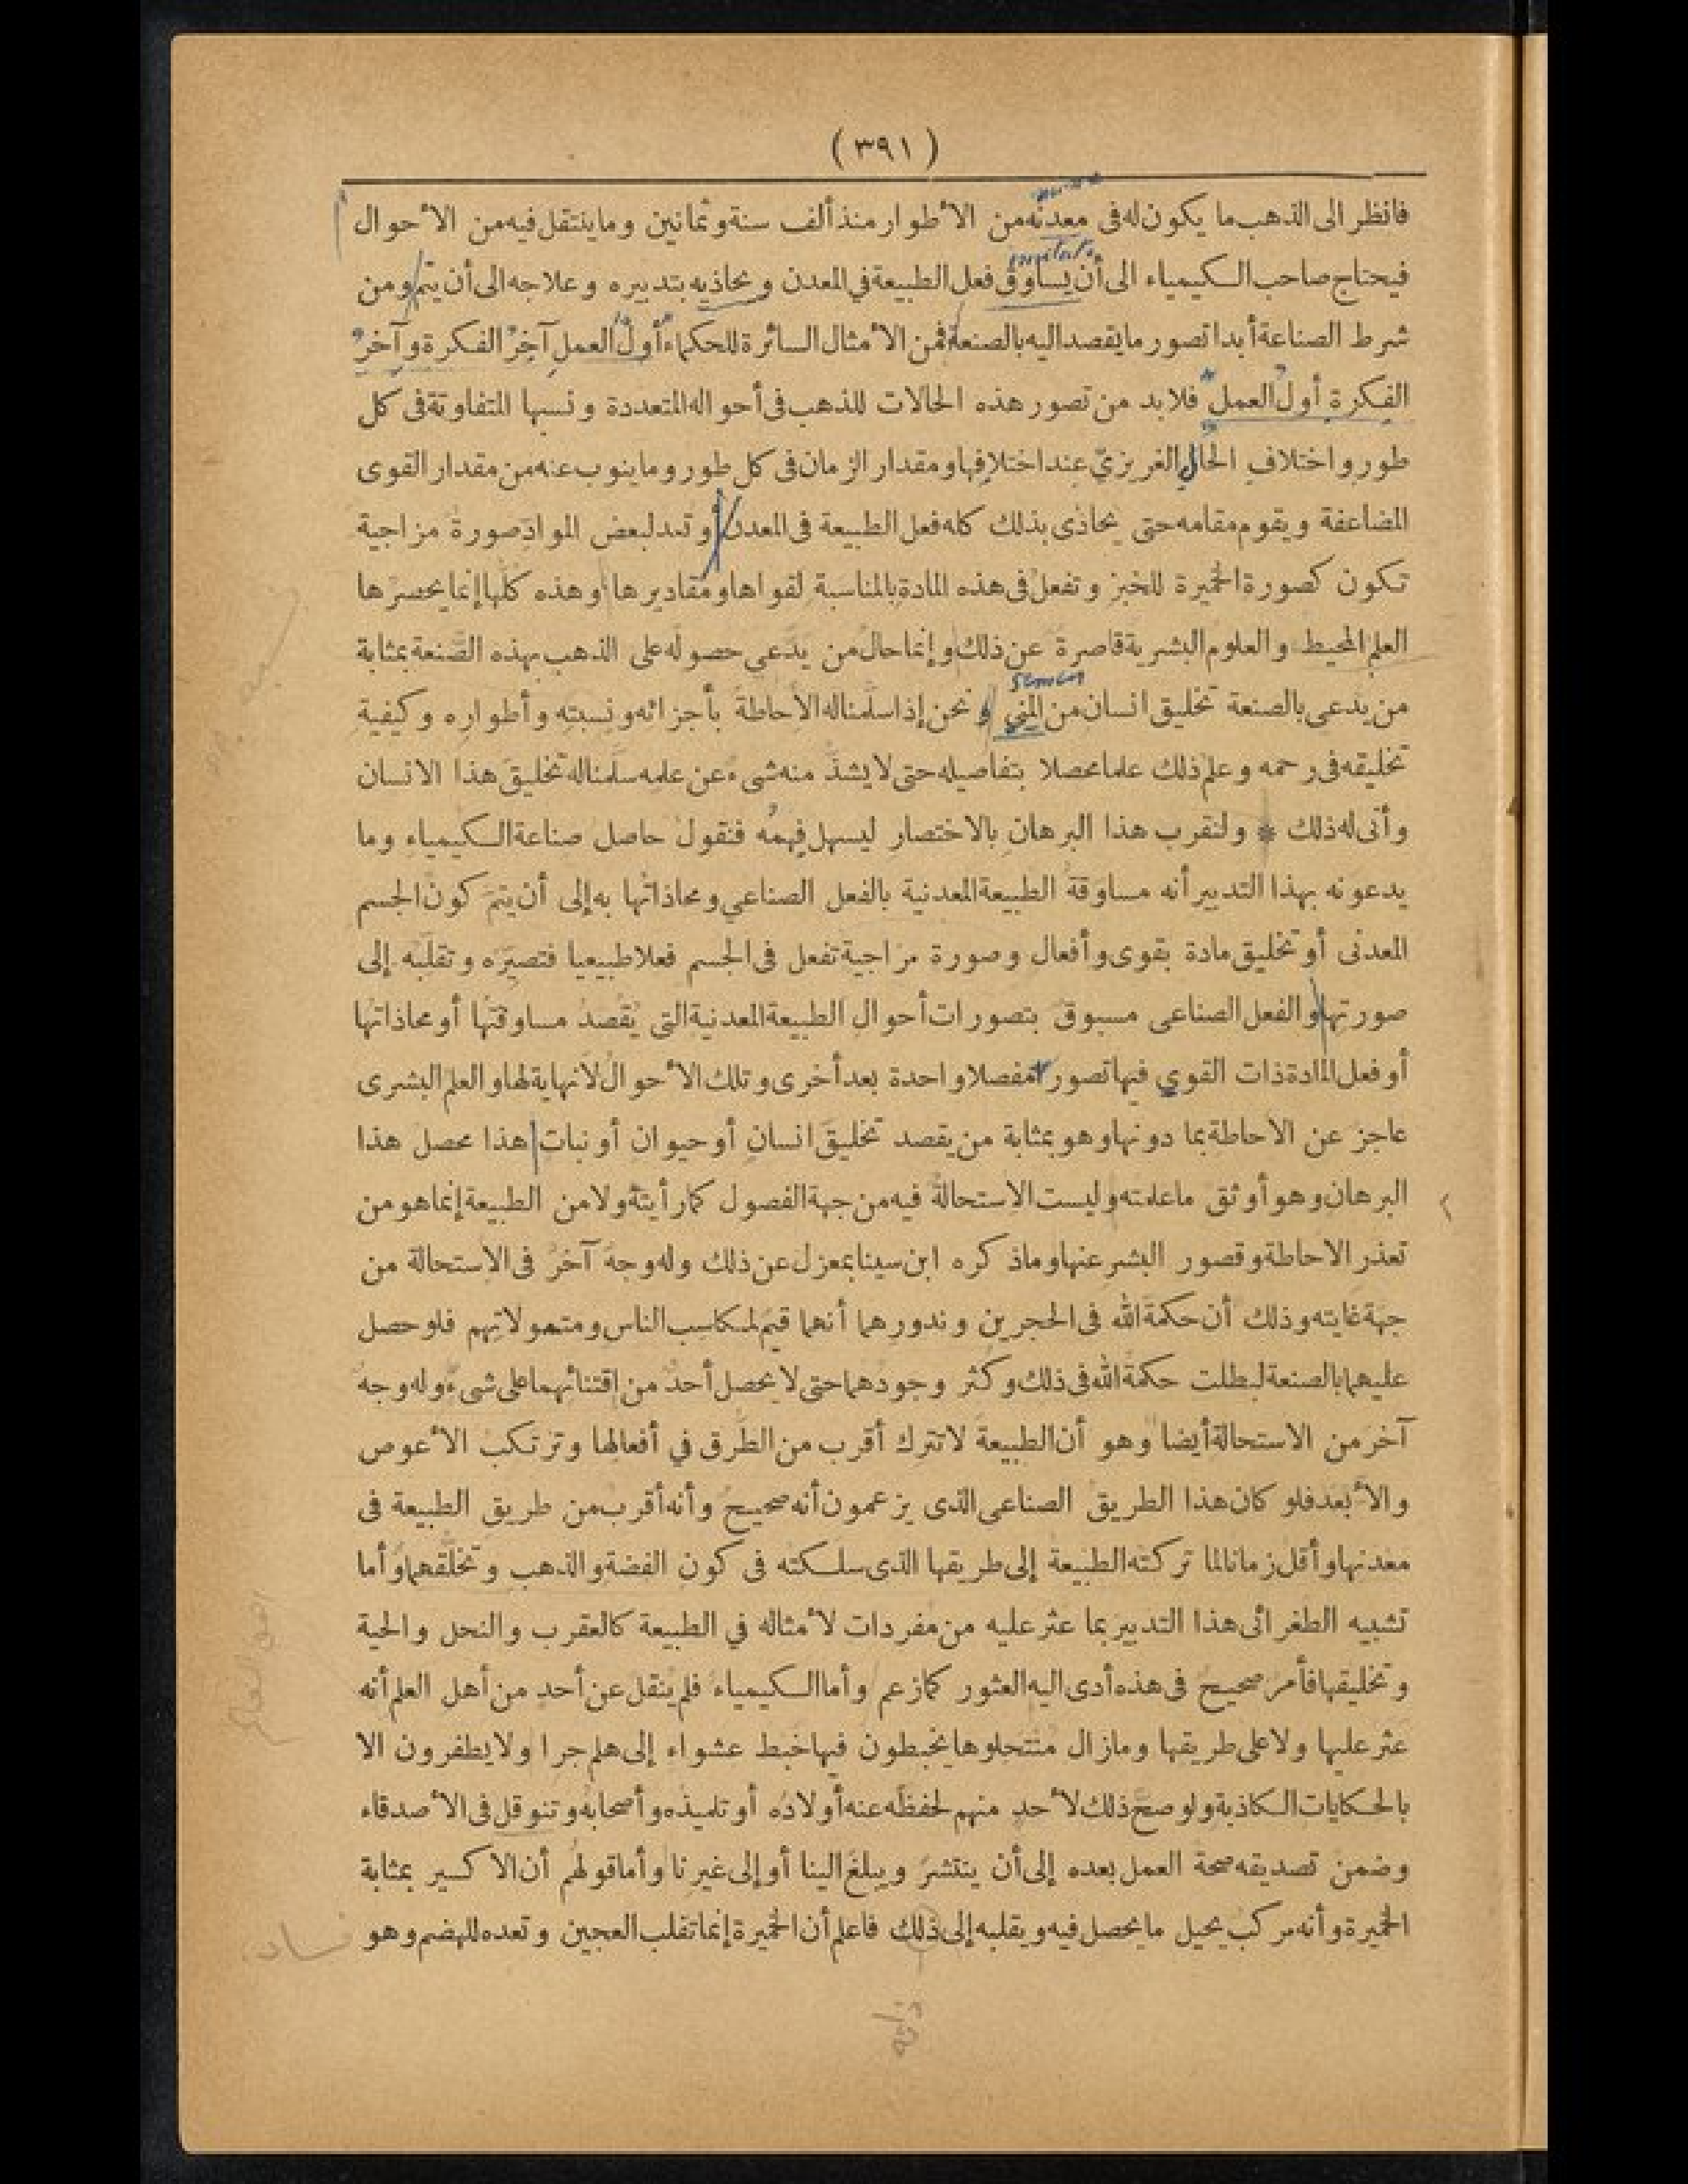 (٣٩١)
فانظر الى الذهب ما يكون له فى معدنه من الأطوار منذ ألف سنة وثمانين وما ينتقل فيه من الأحوال
فيحتاج صاحب الكيمياء الى أن يساوق فعل الطبيعة في المعدن ويحاذيه بتدبيره وعلاجه الى أن يتم ومن
شرط الصناعة أبدا تصور ما يقصد اليه بالصنعة فمن الأمثال السائرة للحكماء أولُ العملِ آخِرُ الفكرة وآخرُ
الفكرةِ أولُ العمل فلا بد من تصور هذه الحالات للذهب فى أحواله المتعددة ونسبها المتفاوتة فى كل
طور واختلافِ الحال الغريزيّ عند اختلافِها ومقدار الزمان فى كل طور وما ينوب عنه من مقدار القوى
المضاعفة ويقوم مقامه حتى يحاذى بذلك كله فعل الطبيعة فى المعدن أو تعد لبعض الموادّ صورةً مزاجية
تكون كصورة الخميرة للخبز وتفعلُ فى هذه المادة بالمناسبة لقواها ومقاديرها وهذه كلُّها إنما يحصرُها
العلم المحيط والعلوم البشرية قاصرة عن ذلك وإنما حالُ من يدَّعى حصوله على الذهب بهذه الصَّنعة بمثابة
من يدعى بالصنعة تخليق انسان من المنى ونحن إذا سلَّمنا له الاحاطةَ بأجزائه ونسبتِه وأطوارِه وكيفيةِ
تخليقه فى رحمه وعلم ذلك علما محصلا بتفاصيله حتى لا يشذَّ منه شىءٌ عن علمه سلَّمنا له تخليقَ هذا الانسان
وأنى له ذلك * ولنقرب هذا البرهانِ بالاختصار ليسهل فهمُه فنقولُ حاصل صناعة الكيمياءِ وما
يدعونه بهذا التدبير أنه مساوقةُ الطبيعة المعدنية بالفعل الصناعى ومحاذاتُها به إلى أن يتمَّ كونُ الجسم
المعدنى أو تخليق مادة بقوى وأفعال وصورة مزاجية تفعل فى الجسم فعلا طبيعيا فتصيرُه وتقلبُه إلى
صورتها والفعل الصناعى مسبوقٌ بتصورات أحوالِ الطبيعة المعدنية التى يُقصَدُ مساوقتُها أو محاذاتُها
أو فعل المادة ذات القوى فيها تصورا مفصلا واحدة بعد أخرى وتلك الأحوالُ لا نهاية لها والعلم البشرى
عاجز عن الاحاطة بما دونها وهو بمثابة من يقصد تخليقَ انسانٍ أو حيوانٍ أو نباتٍ هذا محصل هذا
البرهان وهو أوثق ما علمته وليست الاستحالةُ فيه من جهة الفصول كما رأيتَه ولا من الطبيعة إنما هو من
تعذر الاحاطة وقصور البشر عنها وما ذكره ابن سينا بمعزل عن ذلك وله وجهٌ آخرُ فى الاستحالة من
جهة غايته وذلك أن حكمة الله فى الحجرين وندورهما أنهما قيم لمكاسب الناس ومتمولاتِهم فلو حصل
عليهما بالصنعة لبطلت حكمةُ الله فى ذلك وكثر وجودُهما حتى لا يحصل أحدٌ من اقتنائهما على شىءٍ وله وجهٌ
آخر من الاستحالة أيضا وهو أن الطبيعة لا تترك أقرب من الطُّرق في أفعالها وترتكب الأعوص
والأبعد فلو كان هذا الطريق الصناعى الذى يزعمون أنه صحيحٌ وأنه أقرب من طريق الطبيعة فى
معدنها وأقل زمانا لما تركته الطبيعة إلى طريقها الذى سلكته فى كون الفضة والذهب وتخلُّقهما وأما
تشبيه الطغرائى هذا التدبير بما عثر عليه من مفردات لأمثاله في الطبيعة كالعقرب والنحل والحية
وتخليقها فأمرٌ صحيحٌ فى هذه أدى اليه العثور كما زعم وأما الكيمياءُ فلم يُنقل عن أحدٍ من أهل العلم أنه
عثر عليها ولا على طريقها وما زال مُنتحلوها يخبطون فيها خبط عشواء إلى هلم جرا ولا يظفرون الا
بالحكايات الكاذبة ولو صحَّ ذلك لأحدٍ منهم لحفظَه عنه أولادُه أو تلميذُه وأصحابُه وتنوقل فى الأصدقاء
وضمن تصديقه صحة العمل بعده إلى أن ينتشرَ ويبلغَ الينا أو إلى غيرنا وأما قولهُم أن الاكسير بمثابة
الخميرة وأنه مركب يحيل ما يحصل فيه ويقلبه إلى ذلك فاعلم أن الخميرة إنما تقلب العجين وتعده للهضم وهو
ذاته